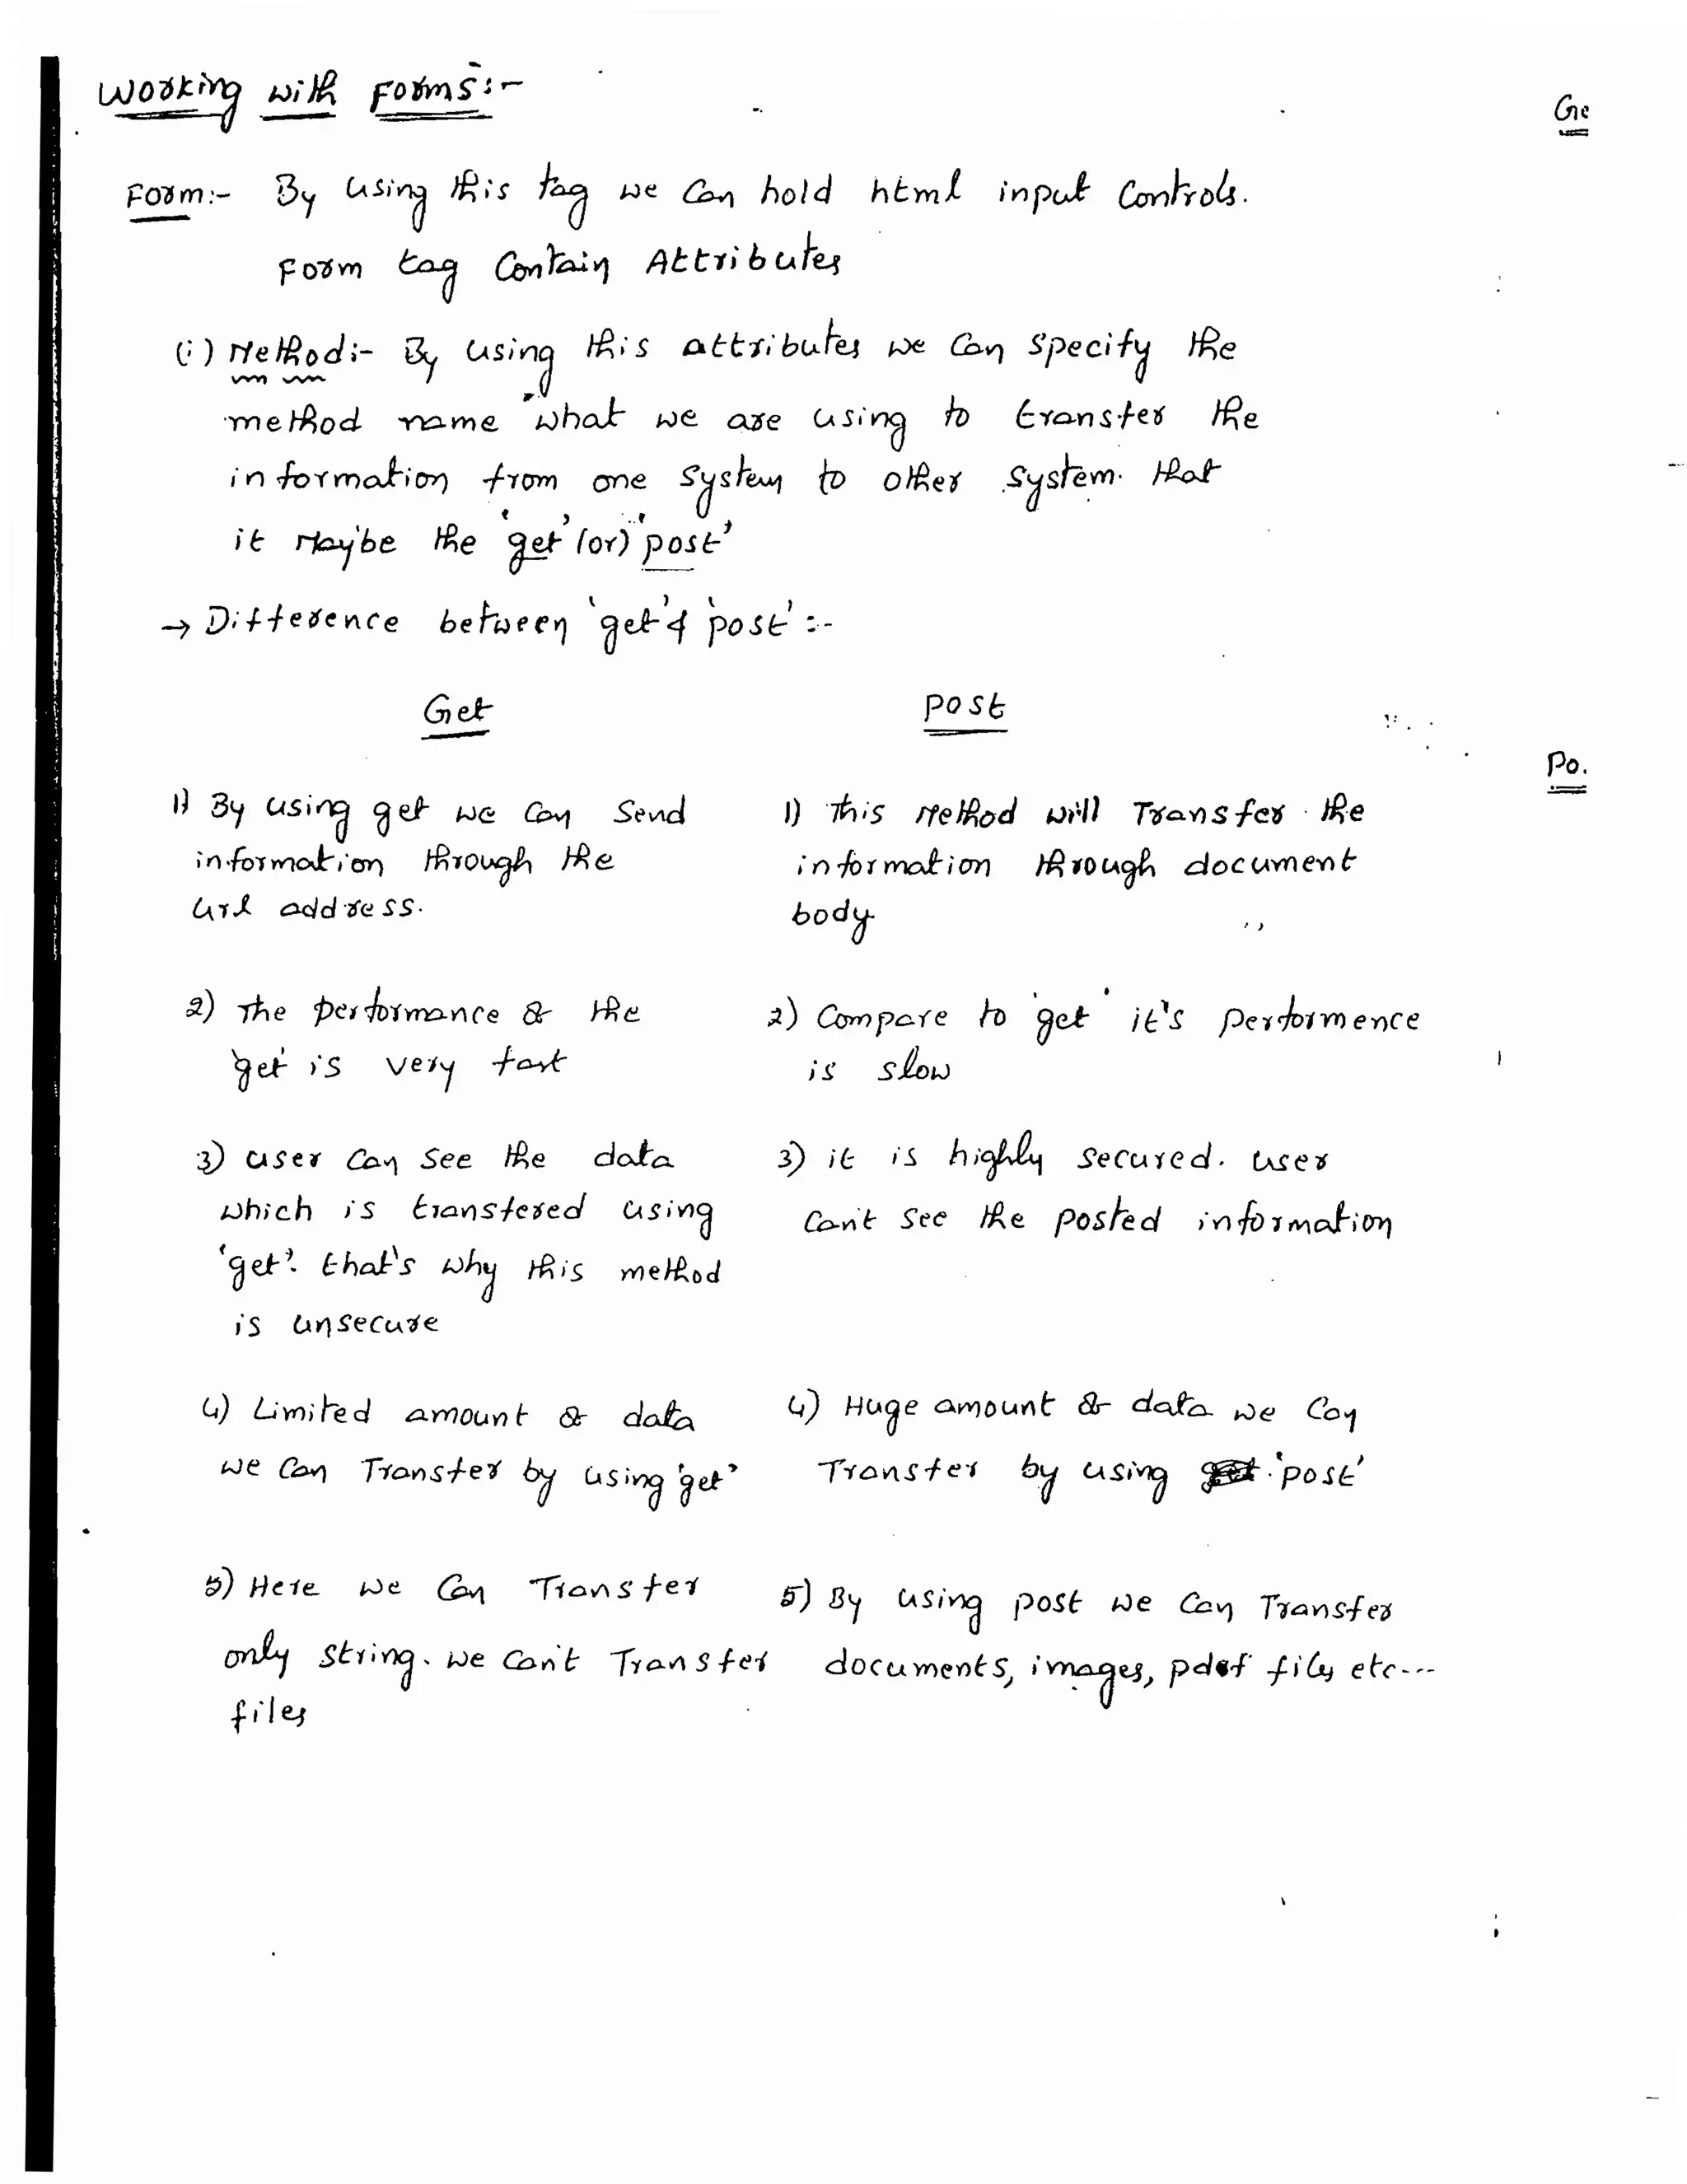 Working with Forms:-
Ge
Form:- By using this tag we can hold html input controls.
Form tag contain Attributes
(i) Method:- By using this attributes we can specify the
method name what we are using to transfer the
information from one system to other system. that
it Maybe the 'get' (or) 'post'
→ Difference between 'get' & 'post' :-
Get
post
Po.
1) By using get we can send
information through the
url address.
1) This Method will Transfer the
information through document
body
2) The performance & the
'get' is very fast
2) Compare to 'get' it's performence
is slow
3) user can see the data
which is transfered using
'get'. that's why this method
is unsecure
3) it is highly secured. user
can't see the posted information
4) Limited amount & data
we can Transfer by using 'get'
4) Huge amount & data we can
Transfer by using 'post'
5) Here we can Transfer
only string. we can't Transfer
files
5) By using post we can Transfer
documents, images, pdf files etc---